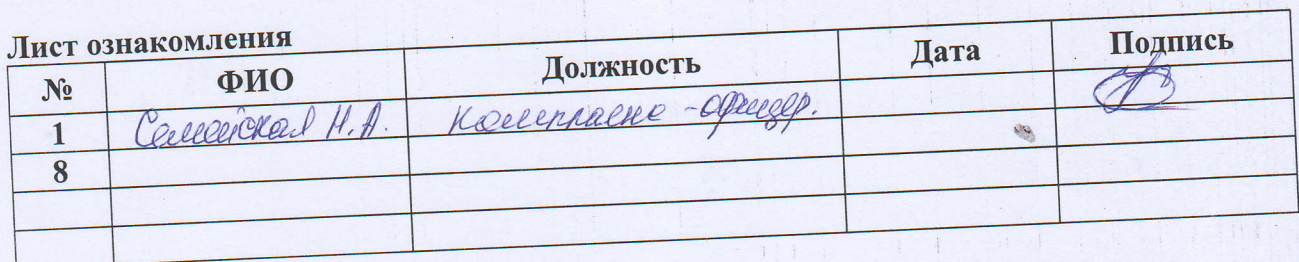 Лист ознакомления
№ ФИО Должность Дата Подпись
1 Семейская Н.А. Комплаенс-офицер.
8